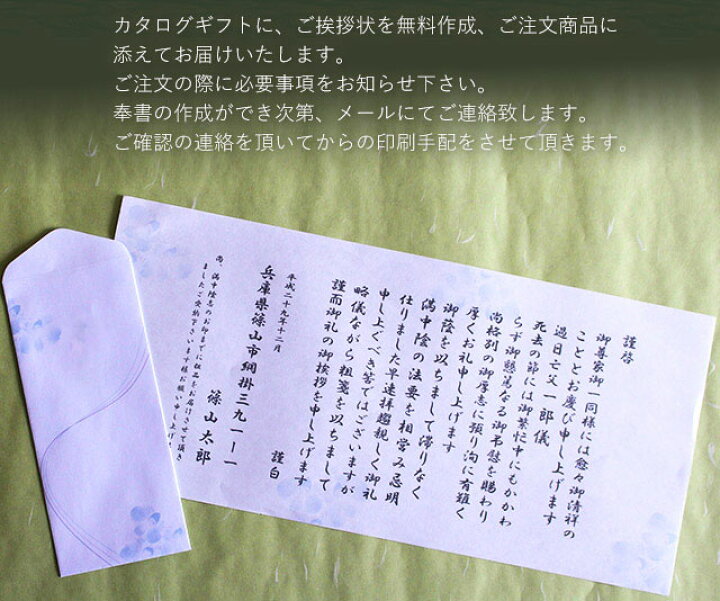 カタログギフトに、ご挨拶状を無料作成、ご注文商品に
添えてお届けいたします。
ご注文の際に必要事項をお知らせ下さい。
奉書の作成ができ次第、メールにてご連絡致します。
ご確認の連絡を頂いてからの印刷手配をさせて頂きます。
謹啓
御尊家御一同様には愈々御清祥の
こととお慶び申し上げます
過日亡父一郎儀
死去の節には御繁忙中にもかかわ
らず御懇篤なる御弔慰を賜わり
尚格別の御厚志に預り洵に有難く
厚くお礼申し上げます
御陰を以ちまして滞りなく
満中陰の法要を相営み忌明
仕りました早速拝趨親しく御礼
申し上ぐべき筈ではございますが
略儀ながら粗箋を以ちまして
謹而御礼の御挨拶を申し上げます
謹白
平成二十九年十二月
兵庫県篠山市網掛三九一ー一
篠山太郎
尚、満中陰志のお印までに粗品をお届けさせて頂き
ましたご受納下さいます様お願い申し上げます